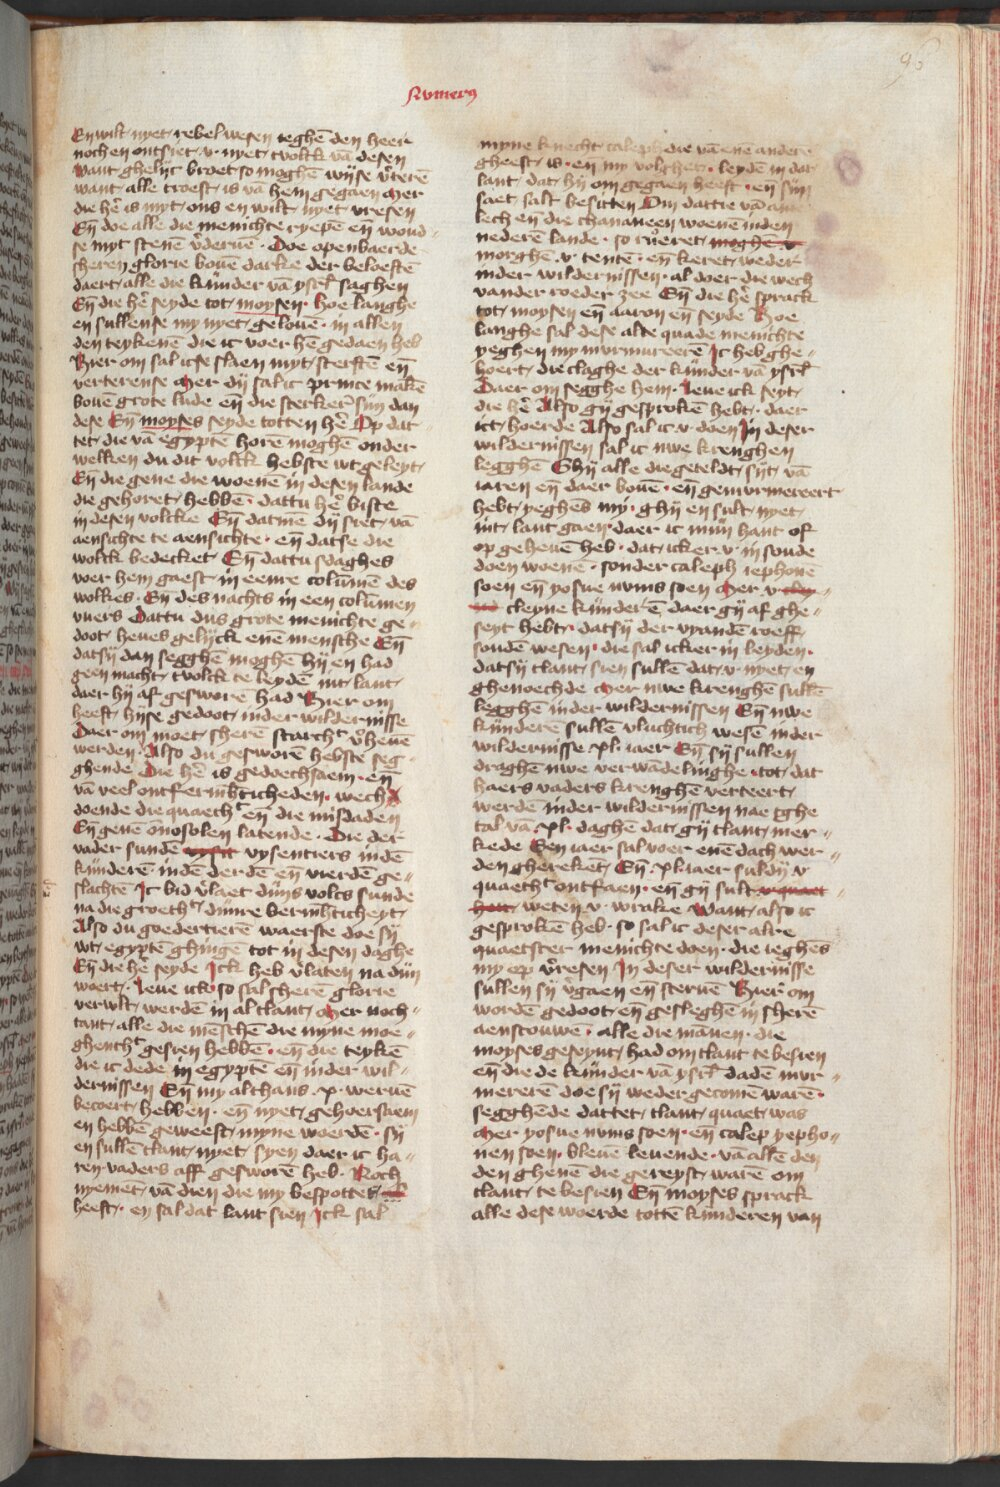 96
Numerus
En wilt nyet rebel wesen teghē den heer
noch en ontsiet v nyet tvolck vā desen
Want ghelijc broet so moghē wijse v̄terē
want alle troest is vā hem gegaen Mer
die hē is myt ons en wilt nyet vresen
En̄ doe alle die menichte ryepē en̄ woud
se myt stenē v̄deruē Doe openbaerde
sheren glorie bouē darke der beloefte
daert alle die kinder vā ysrl̄ saghen
En̄ die hē seyde tot moysen hoe langhe
en sullense my nyet gelouē in allen
den teykenē die ic voer hē gedaen heb
Hier om sal icse slaen myt sterftē en̄
verterense Mer dij sal ic prince makē
bouē grote lude en̄ die stercker sijn dan
dese En̄ moyses seyde totten hē Op dat
tet die vā egyptē horē moghē onder
welken du dit volck hebste wt geleyt
En̄ die gene die woenē in desen lande
die gehoret hebbē dattu hē biste
in desen volcke En̄ datmē dij siet vā
aensichte te aensichte en̄ datse die
wolck bedecket En̄ dattu sdaghes
voer hem gaest in eenre colūmē des
wolkes En̄ des nachts in een colūmen
vuers Dattu dus grote menichte ge
doot heues gelijck enē mensche En̄
datsij dan segghē moghē hij en had
geen macht tvolck te leydē int lant
daer hij af gesworē had Hier om
heeft hijse gedoot inder wildernisse
Daer om moet sherē starcht v̄heuē
werden Also du gesworē hebste seg
ghende Die hē is gedoechsaem en̄
vā veel ontfermhticheden wech
doende die quaecht en̄ die misdaden
En̄ genē onnosolen latende Die der
vader sundē vysentiers indē
kinderē indē derdē en̄ vierdē ge
slachtē Ic bid v̄laet dijns volcs sunde
na die groetht dinre bermhticheyt
Also du goedertierē waerste doe sij
wt egyptē ghingē tot in desen daghe
En̄ die hē seyde Ick heb v̄laten na dijn
woert Leue ick so sal sherē glorie
verwlt werdē in al tlant Mer noch
tant alle die mēschē die myne moe
ghentht gesien hebbē en̄ die teykē
die ic dede in egyptē en̄ inder wil
dernissen En̄ my althans x weruē
becoert hebben en̄ nyet gehoersaem
en hebbē geweest myne woerdē sij
en sullē tlant nyet syen daer ic ha
ren vaders aff gesworē heb Noch
nyemēt vā dien die my bespottet
heeft en sal dat lant sien Ick sal
myne knecht caleph die vā enē anderē
gheest is en̄ my volghet leydē in dat
lant dat hij om gegaen heeft en̄ sijn
saet salt besitten Om dattie vā
lech en̄ die chananeen woenē inden
nederē lande so rueret moghē v
morghē v tentē en̄ keret weder
inder wildernissen al doer die wech
vander roeder zee En̄ die hē sprack
tot moysen en̄ aaron en̄ seyde Hoe
langhe sal dese alte quade menichte
yeghen my murmureerē Ic heb ghe
hoert die claghe der kinder vā ysrl̄
Daer om segghe hem Leue ick seyt
die hē Also gij gesprokē hebt daer
ict hoerde Also sal ic v doen In deser
wildernissen sal ic uwe krenghen
legghē Ghij alle die geteldt sijt vā
iaren en̄ daer bouē en̄ gemurmereert
hebt yeghēs my ghij en sult nyet
int lant gaen daer ic mijn hant of
op geheuē heb dat icker v in soude
doen woenē sonder caleph iephone
soen en̄ yosue nuns soen Mer v
cleyne kinderē daer gij af ghe
seyt hebt datsij der vyandē roeff
soudē wesen die sal icker in leyden
datsij tlant sien sullē dat v nyet en
ghenoechde Mer uwe krenghē sullē
legghē inder wildernissen En̄ uwe
kinderē sullē vluchtich wesē inder
wildernisse xl iaer En̄ sij sullen
draghē uwe verwādelinghe tot dat
haers vaders krenghē verteert
werdē inder wildernissen nae tghe
tal vā xl daghē dat gij tlant mer
kede Een iaer sal voer enē dach wer
den gherekēt En̄ xl iaer suldij v
quaetht ontfaen en̄ gij sult v quaet
heit weten v wrake Want also ic
gesprokē heb so sal ic deser alre
quaetster menichte doen die ieghēs
my op v̄resen In deser wildernisse
sullen sij v̄gaen en̄ steruē Hier om
wordē gedoot en̄ geslegē in sherē
aenscouwē alle die mānen die
moyses geseynt had om tlant te besien
en̄ die de kinder vā ysrl̄ dadē mur
mererē doe sij weder gecomē warē
segghēde dattet tlant quaet was
Mer yosue nuns soen en̄ calep yepho
nen soen bleuē leuende vā allē den
den ghenē die gereyst warē om
tlant te besien En̄ moyses sprack
alle dese woerde tottē kinderen van